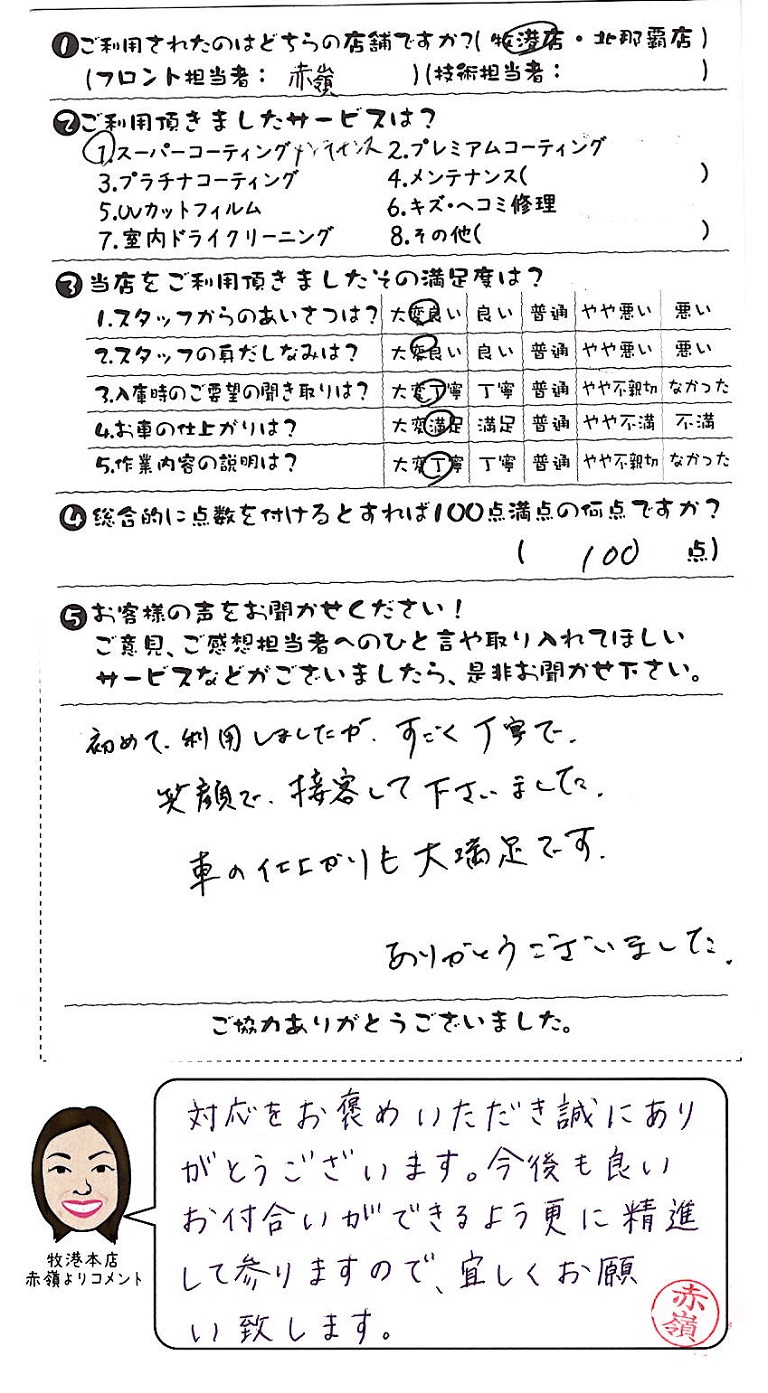 ❶ご利用されたのはどちらの店舗ですか?(牧港店・北那覇店)
(フロント担当者: 赤嶺 )(技術担当者: )
❷ご利用頂きましたサービスは?
1.スーパーコーティング メンテナンス 2.プレミアムコーティング
3.プラチナコーティング 4.メンテナンス( )
5.UVカットフィルム 6.キズ・ヘコミ修理
7.室内ドライクリーニング 8.その他( )
❸当店をご利用頂きましたその満足度は?
1.スタッフからのあいさつは? 大変良い 良い 普通 やや悪い 悪い
2.スタッフの身だしなみは? 大変良い 良い 普通 やや悪い 悪い
3.入庫時のご要望の聞き取りは? 大変丁寧 丁寧 普通 やや不親切 なかった
4.お車の仕上がりは? 大変満足 満足 普通 やや不満 不満
5.作業内容の説明は? 大変丁寧 丁寧 普通 やや不親切 なかった
❹総合的に点数を付けるとすれば100点満点の何点ですか?
( 100 点)
❺お客様の声をお聞かせください!
ご意見、ご感想担当者へのひと言や取り入れてほしい
サービスなどがございましたら、是非お聞かせ下さい。
初めて、利用しましたが、すごく丁寧で、
笑顔で、接客して下さいました。
車の仕上がりも大満足です。
ありがとうございました。
ご協力ありがとうございました。
対応をお褒めいただき誠にあり
がとうございます。今後も良い
お付合いができるよう更に精進
して参りますので、宜しくお願
い致します。
牧港本店
赤嶺よりコメント
赤嶺